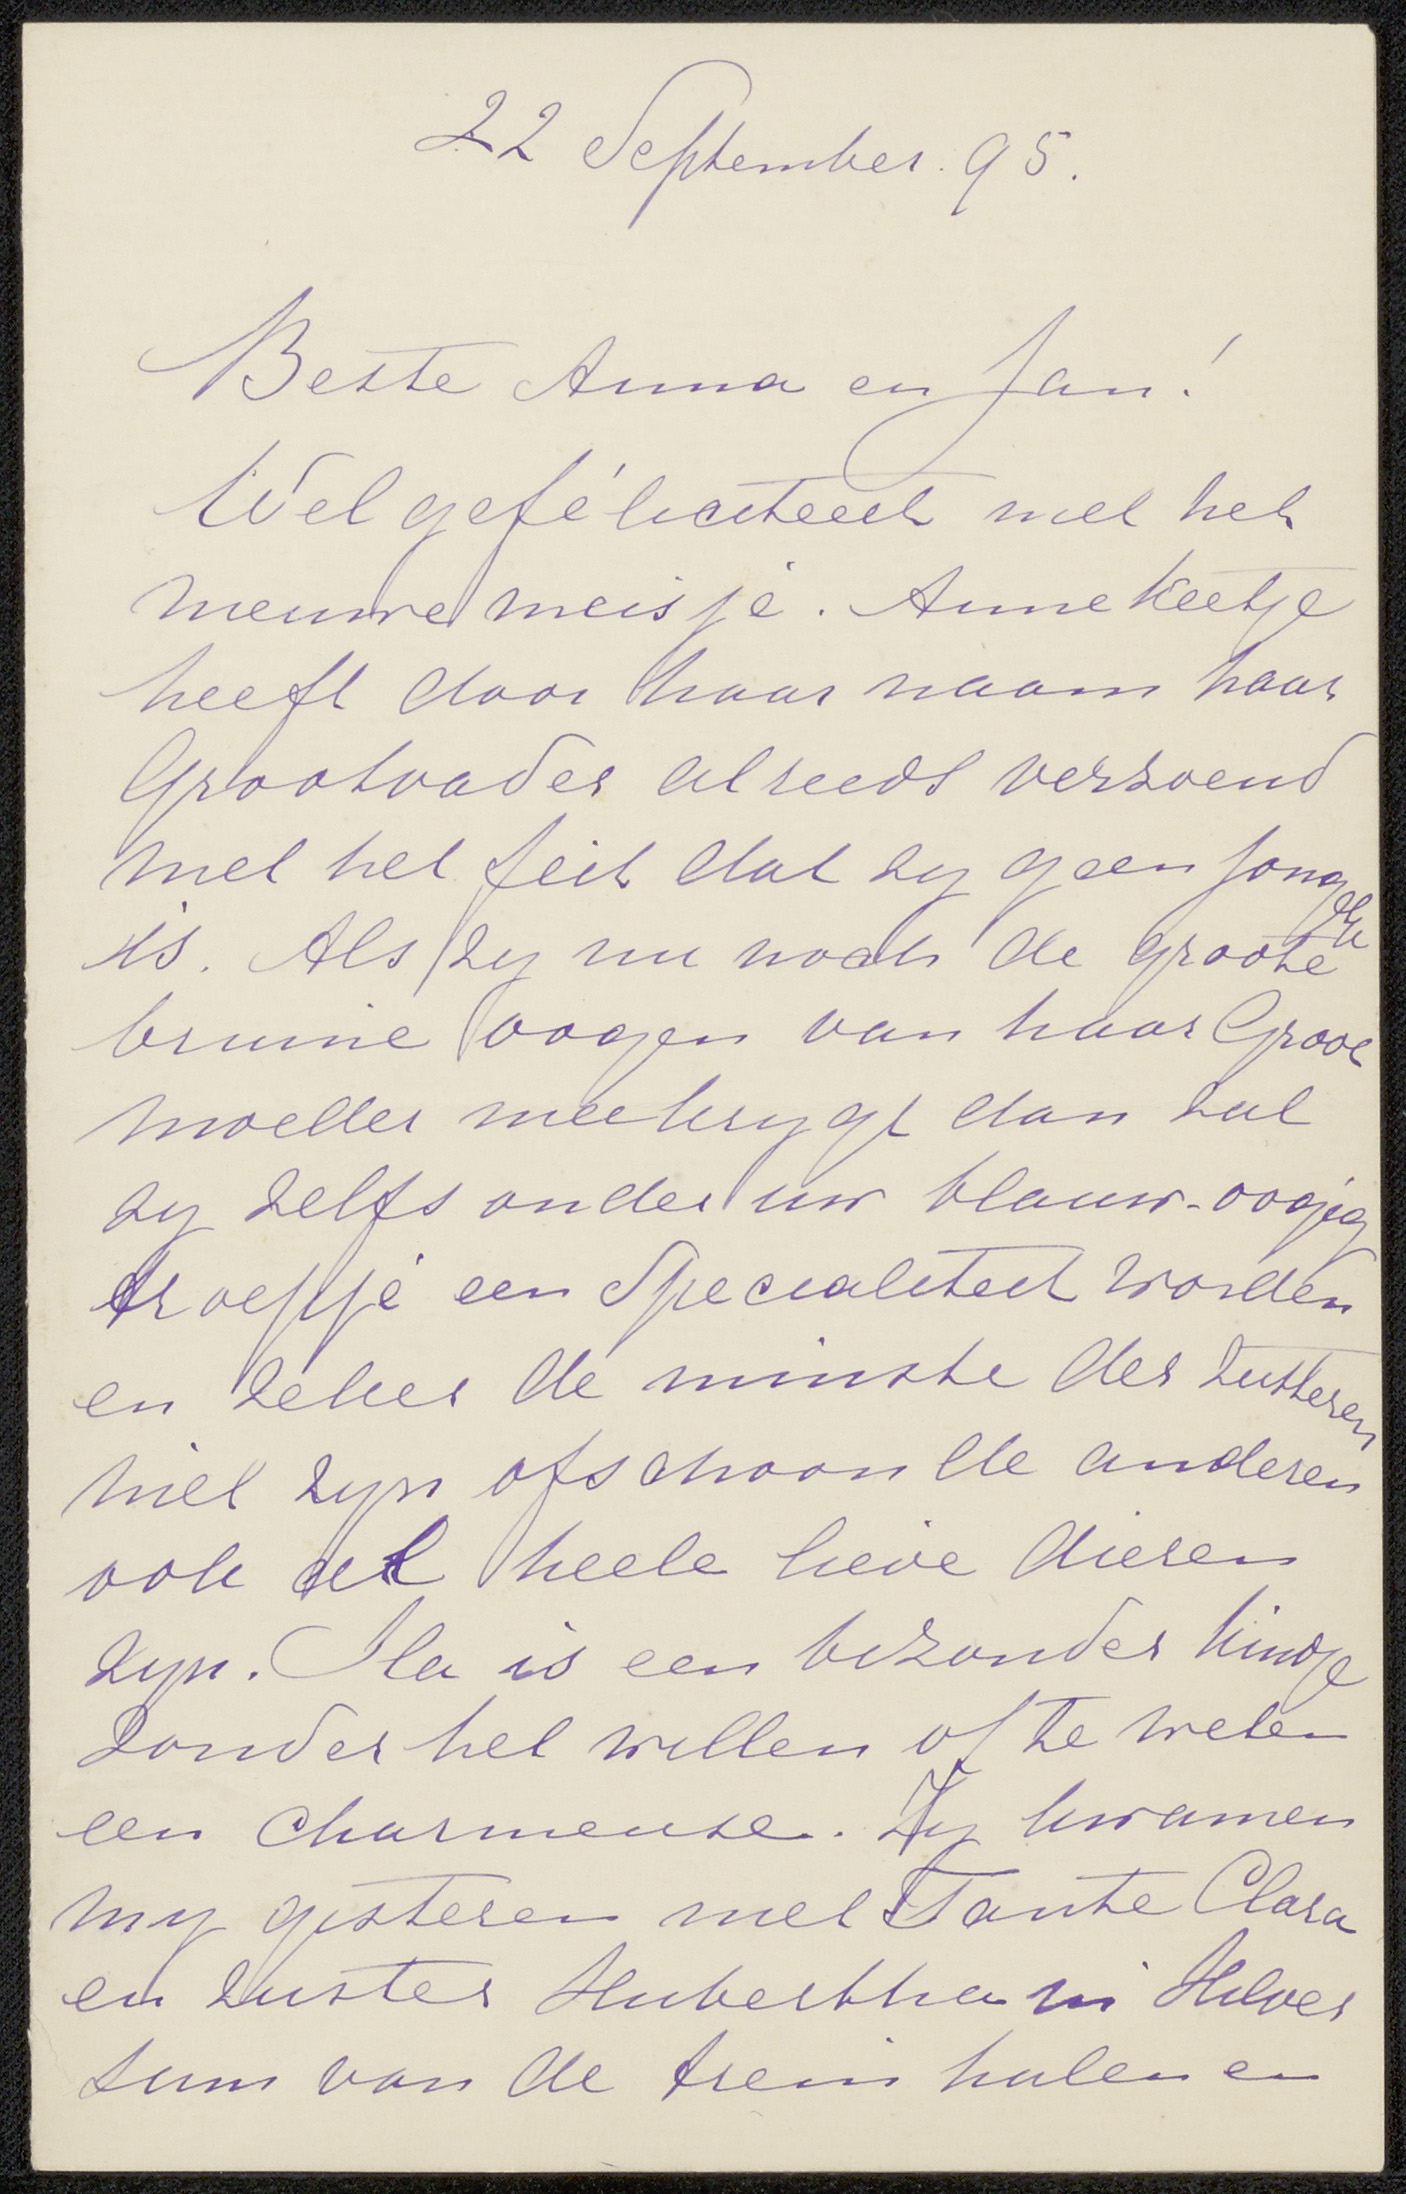 22 September. 95.
Beste Anna en Jan!
Wel gefeliciteerd met het
nieuwe meisje. Annekeetje
heeft door haar naam haar
Grootvader alreeds verzoend
met het feit dat zy geen jongen
is. Als zy nu noch de groote
bruine oogen van haar Groot
moeder meekrygt dan zal
zy zelfs onder uw blauw-oogig
troepje een Specialiteit worden
en zeker de minste der zusteren
niet zyn ofschoon de anderen
ook al heele lieve dieren
zyn. Ila is een bizonder kindje
zonder het willen of te weten
een charmeuse. Zy kwamen
my gisteren met Tante Clara
en zuster Hubertha in Hilver
sum van de trein halen en